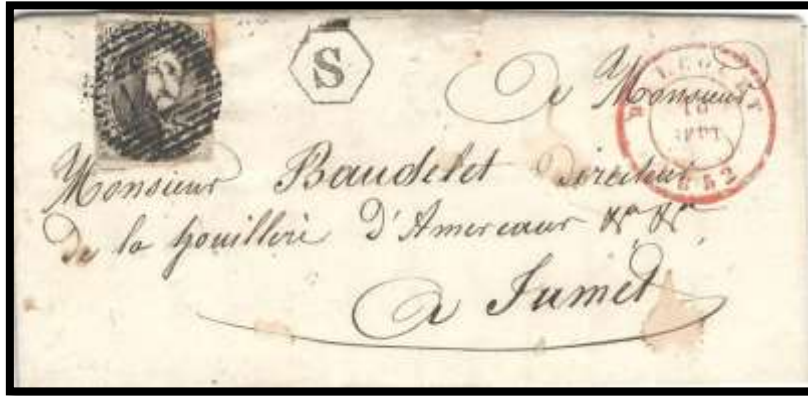 S
A Monsieur
Monsieur Baudelet Directeur
De la houillere D'Amercœur &ª &ª
A Jumet
10
SEPT
1852